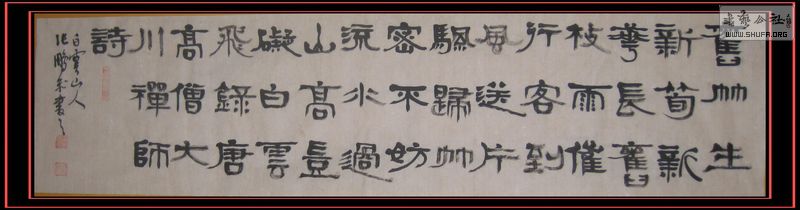 舊竹生
新筍新
華長舊
枝雨催
行客到
風送片
颿歸竹
密不妨
流水過
山高豈
礙白雲
飛錄唐
高僧大
川禪師
詩
白雲山人
鵬書之
书艺公社
WWW.SHUFA.ORG